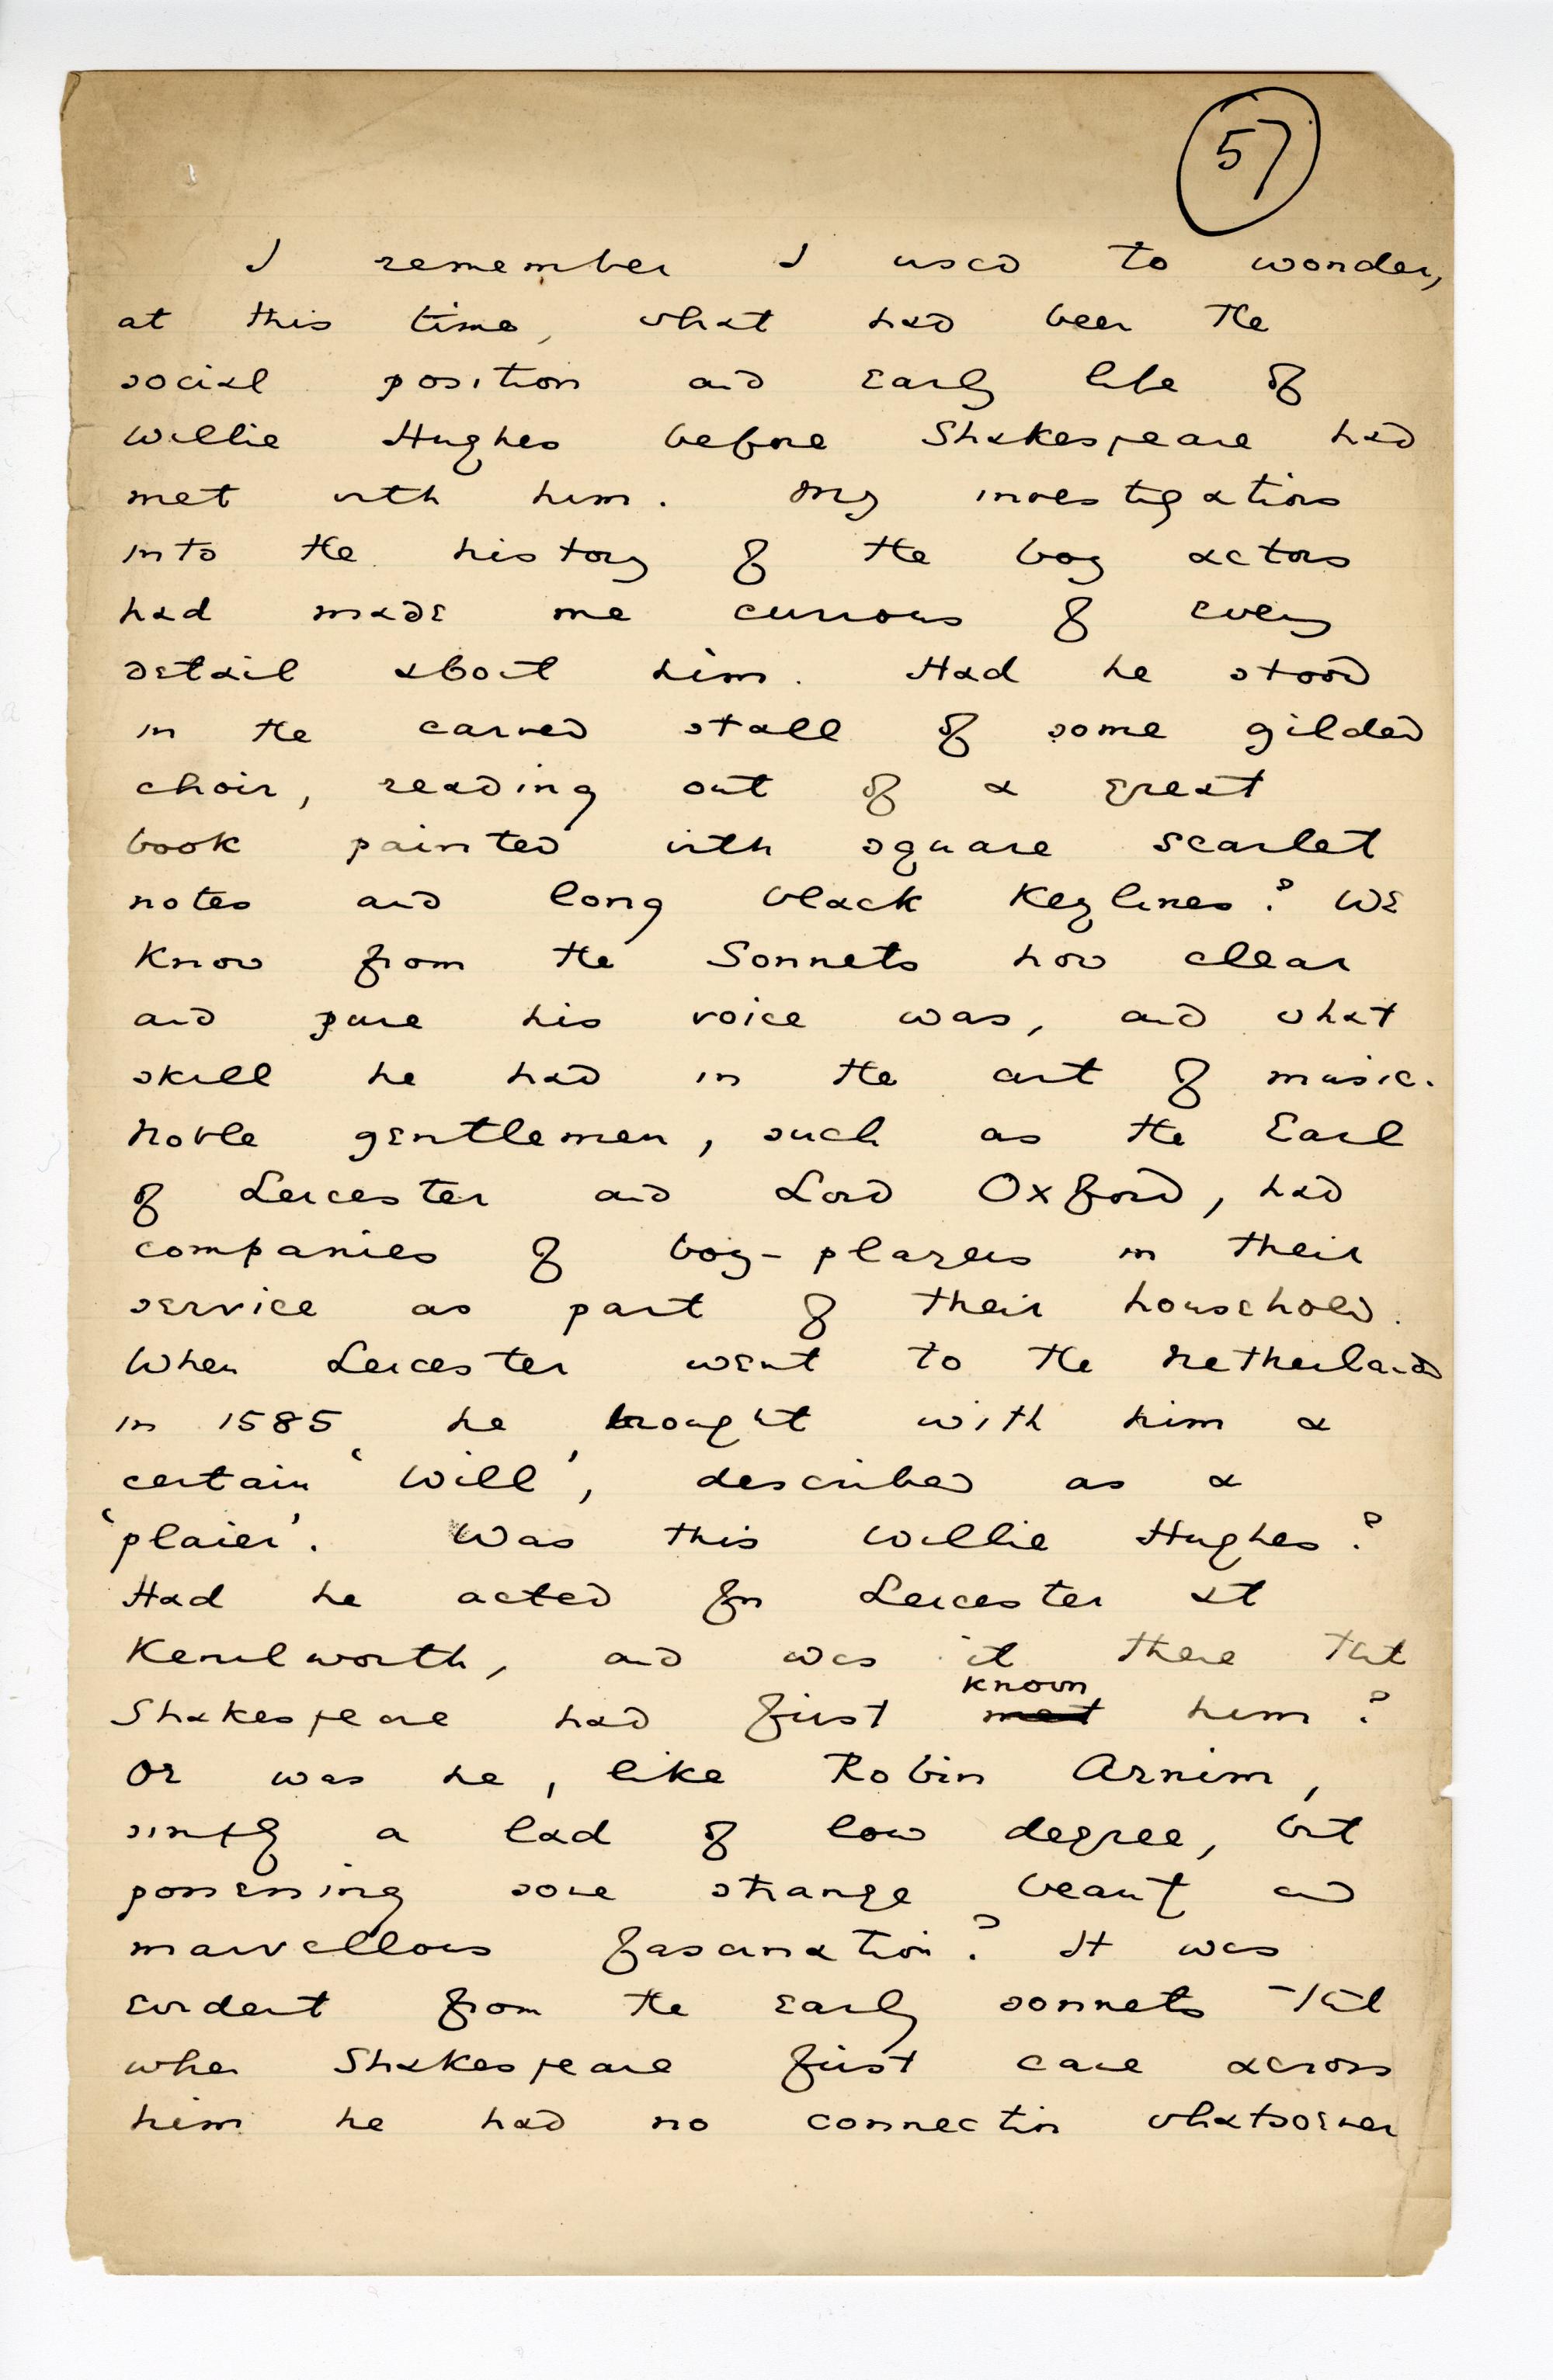 57
I remember I used to wonder,
at this time, what had been the
social position and early life of
Willie Hughes before Shakespeare had
met with him. My investigations
into the history of the boy actors
had made me curious of every
detail about him. Had he stood
in the carved stall of some gilded
choir, reading out of a great
book painted with square scarlet
notes and long black keylines? We
know from the Sonnets how clear
and pure his voice was, and what
skill he had in the art of music.
Noble gentlemen, such as the Earl
of Leicester and Lord Oxford, had
companies of boy-players in their
service as part of their household.
When Leicester went to the Netherlands
in 1585 he brought with him a
certain 'Will', described as a
'plaier'. Was this Willie Hughes?
Had he acted for Leicester at
Kenilworth, and was it there that
known
Shakespeare had first met him?
Or was he, like Robin Arnim,
simply a lad of low degree, but
possessing some strange beauty and
marvellous fascination? It was
evident from the early sonnets that
when Shakespeare first came across
him he had no connection whatsoever